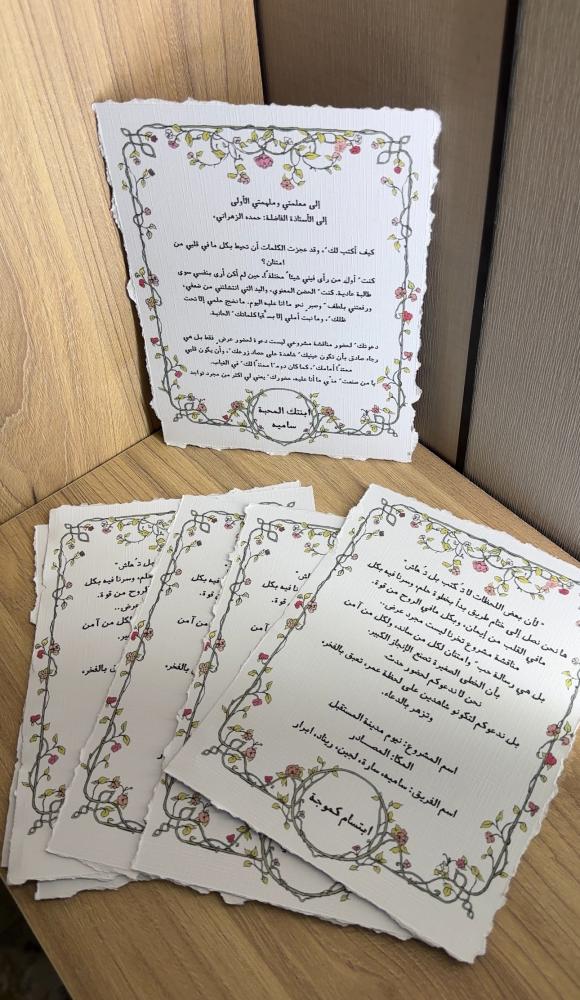 إلى معلمتي وملهمتي الأولى
إلى الأستاذة الفاضلة: حمده الزهراني.
كيف أكتب لك ِ، وقد عجزت الكلمات أن تحيط بكل ما في قلبي من
امتنان؟
كنت ِ أول من رأى فيني شيئا ً مختلفا ً، حين لم أكن أرى بنفسي سوى
طالبة عادية. كنت ِ الحضن المعنوي، واليد التي انتشلتني من ضعفي،
ورفعتني بلطف ٍ وصبر ٍ نحو ما انا عليه اليوم. ما نضج حلمي إلا تحت
ظلك ِ، وما نبت أملي إلا بسقيا كلماتك ِ الحانية.
دعوتك ِ لحضور مناقشة مشروعي ليست دعوة لحضور عرض ٍ فقط بل هي
رجاء صادق بأن تكون عينيك ِ شاهدة على حصاد زرعك ِ، وأن يكون قلبي
ممتنا ً أمامك ِ، كما كان دوما ً ممتنا ً لك ِ في الغياب.
يا من صنعت ِ مني ما أنا عليه، حضورك ِ يعني لي اكثر من مجرد تواجد
ابنتك المحبة
ساميه
"لأن بعض اللحظات لا تكتب بل تُعاش"
ها نحن نصل إلى ختام طريق بدأ بخطوة حلم، وسرنا فيه بكل
مافي القلب من إيمان، وبكل مافي الروح من قوة.
مناقشة مشروع تخرنا ليست مجرد عرض..
بل هي رسالة حب ٍ وامتنان لكل من ساند، ولكل من آمن
بأن الخطى الصغيرة تصنع الإنجاز الكبير.
نحن لا ندعوكم لحضور حدث
بل ندعوكم لتكونو شاهدين على لحظة عمر، تعبق بالفخر،
وتزهر بالدعاء.
اسم المشروع: نيوم مدينة المستقبل
المكا: المصادر
اسم الفريق: ساميه، سارة، لجين، ريناد، ابرار
ابتسام كموجة